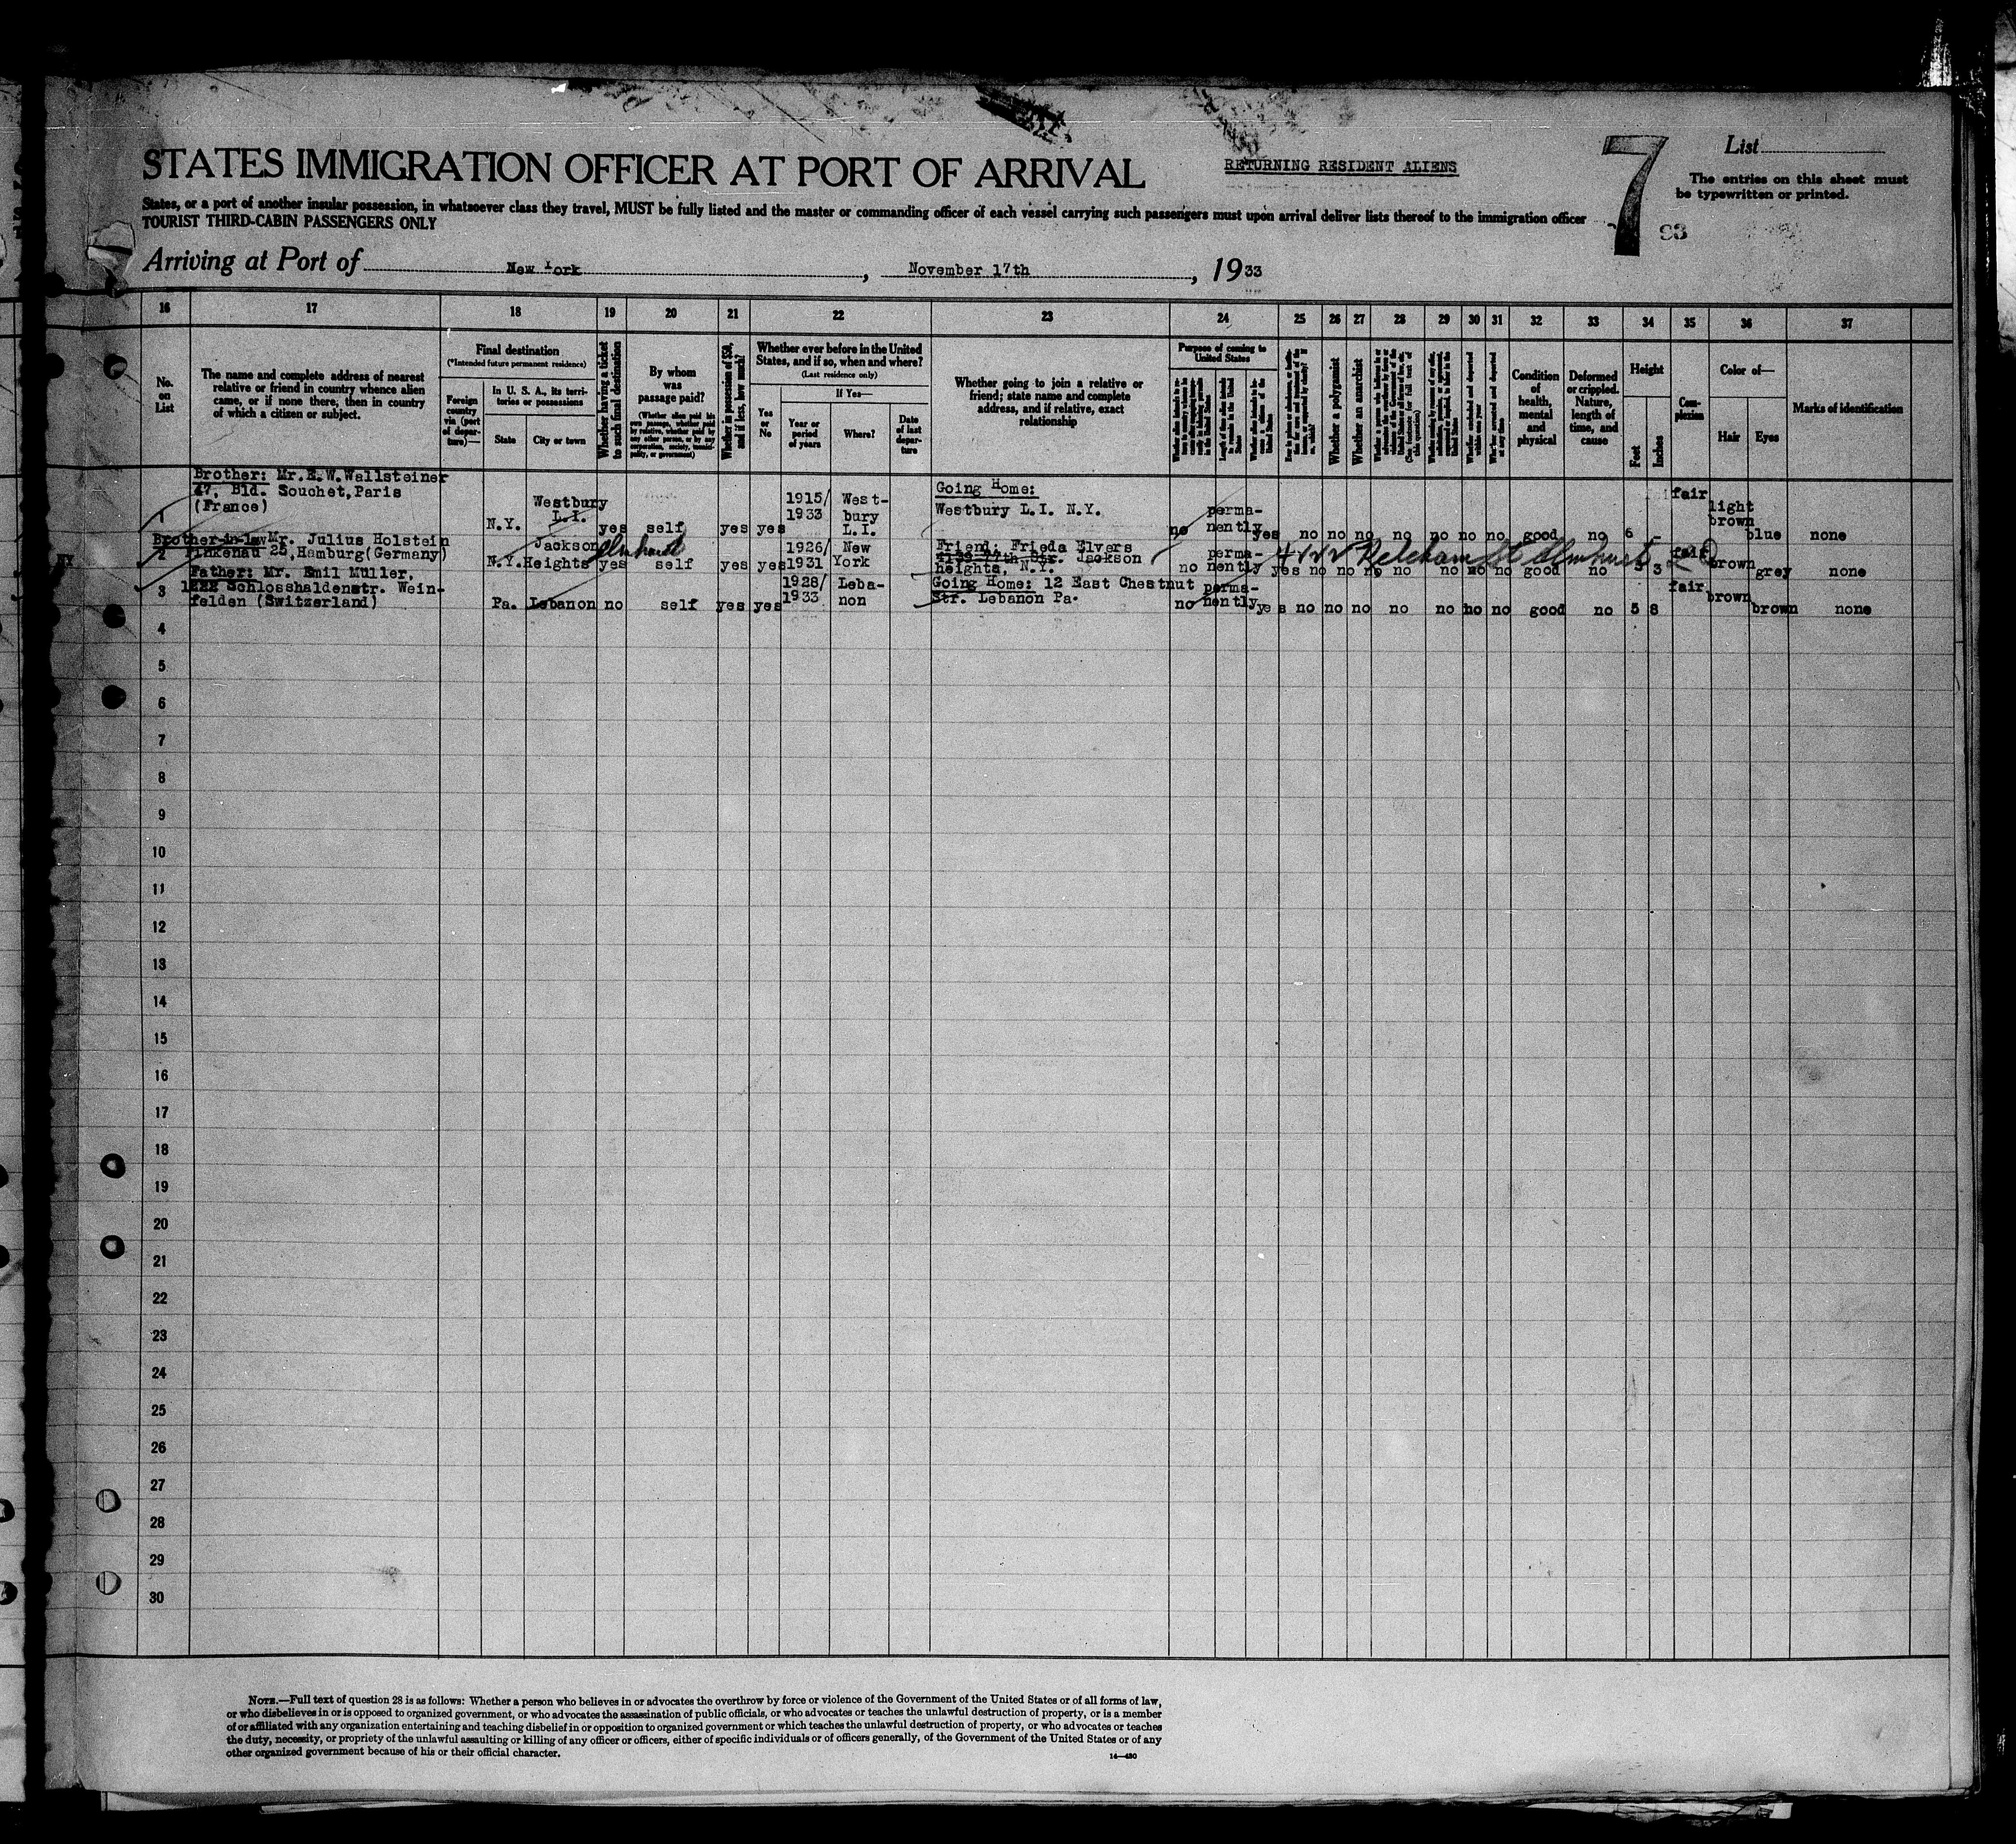 STATES IMMIGRATION OFFICER AT PORT OF ARRIVAL
RETURNING RESIDENT ALIENS
7
List
The entries on this sheet must
be typewritten or printed.
States, or a port of another insular possession, in whatsoever class they travel, MUST be fully listed and the master or commanding officer of each vessel carrying such passengers must upon arrival deliver lists thereof to the immigration officer
TOURIST THIRD-CABIN PASSENGERS ONLY
93
Arriving at Port of New York, November 17th, 1933
16 17 18 19 20 21 22 23 24 25 26 27 28 29 30 31 32 33 34 35 36 37
No. on List
The name and complete address of nearest
relative or friend in country whence alien
came, or if none there, then in country
of which a citizen or subject.
Final destination
(*Intended future permanent residence)
Foreign country via (port of departure)—
In U. S. A., its territories or possessions
State
City or town
Whether having a ticket to such final destination
By whom was passage paid?
(Whether alien paid his own passage, whether paid by relative, whether paid by any other person, or by any corporation, society, municipality, or government)
Whether in possession of $50, and if less, how much?
Whether ever before in the United States, and if so, when and where?
(Last residence only)
Yes or No
If Yes—
Year or period of years
Where?
Date of last departure
Whether going to join a relative or
friend; state name and complete
address, and if relative, exact
relationship
Purpose of coming to United States
Length of time alien intends to remain in the United States
Whether a polygamist
Whether an anarchist
(See footnote for full text of this question)
Whether arrested and deported at any time
Condition of health, mental and physical
Deformed or crippled. Nature, length of time, and cause
Height
Feet
Inches
Complexion
Color of—
Hair
Eyes
Marks of identification
1
Brother: Mr.E.W.Wallsteiner
47, Bld. Souchet, Paris
(France)
N.Y. Westbury L.I. yes self yes yes 1915/1933 Westbury L.I.
Going Home:
Westbury L.I. N.Y.
no permanently yes no no no no no no no good no 6 - fair light brown blue none
2
Brother-in-law Mr. Julius Holstein
Finkenau 25, Hamburg (Germany)
N.Y. Jackson Heights Elmhurst yes self yes yes 1926/1931 New York
Friend: Frieda Elvers
77th Str. Jackson
heights, N.Y.
no permanently yes no no no no no no no good no 5 3 fair brown grey none
Ketcham St Elmhurst
3
Father: Mr. Emil Muller,
Schlosshaldenstr. Wein-
felden (Switzerland)
Pa. Lebanon no self yes yes 1928/1933 Lebanon
Going Home: 12 East Chestnut
Str. Lebanon Pa.
no permanently yes no no no no no no no good no 5 8 fair brown brown none
4
5
6
7
8
9
10
11
12
13
14
15
16
17
18
19
20
21
22
23
24
25
26
27
28
29
30
NOTE.—Full text of question 28 is as follows: Whether a person who believes in or advocates the overthrow by force or violence of the Government of the United States or of all forms of law,
or who disbelieves in or is opposed to organized government, or who advocates the assassination of public officials, or who advocates or teaches the unlawful destruction of property, or is a member
of or affiliated with any organization entertaining and teaching disbelief in or opposition to organized government or which teaches the unlawful destruction of property, or who advocates or teaches
the duty, necessity, or propriety of the unlawful assaulting or killing of any officer or officers, either of specific individuals or of officers generally, of the Government of the United States or of any
other organized government because of his or their official character.
14—430